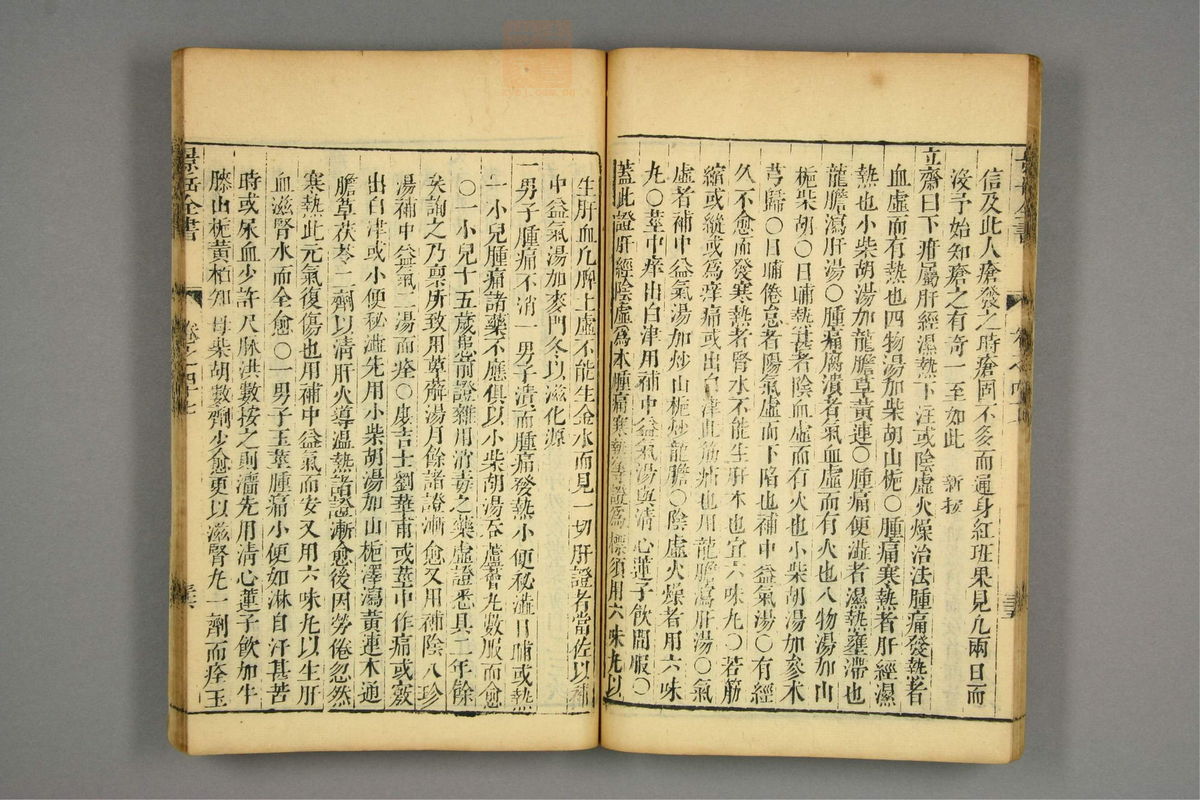 信及此人瘡發之時瘡固不多而遍身紅班果見几兩日而
没予始知瘡之有奇一至如此　新按
立齋曰下疳屬肝經濕熱下注或陰虛火燥治法腫痛發熱者
血虛而有熱也四物湯加柴胡山梔〇腫痛寒熱者肝經濕
熱也小柴胡湯加龍膽草黃連〇腫痛便澁者濕熱壅滯也
龍膽瀉肝湯〇腫痛腐潰者氣血虛而有火也八物湯加山
梔柴胡〇日晡熱甚者陰血虛而有火也小柴胡湯加參术
芎歸〇日晡倦怠者陽氣虛而下陷也補中益氣湯〇有經
久不愈而發寒熱者腎水不能生肝木也宜六味丸〇若筋
縮或縱或為痒痛或出白津此筋疝也用龍膽瀉肝湯〇氣
虛者補中益氣湯加炒山梔炒龍膽〇陰虛火燥者用六味
丸〇莖中痒出白津用補中益氣湯與清心蓮子飲間服〇
蓋此證肝經陰虛爲本腫痛寒熱等證爲標須用六味丸以
生肝血凡脾土虛不能生金水而見一切肝證者當佐以補
中益氣湯加麥門冬以滋化源
一男子腫痛不消一男子潰而腫痛發熱小便秘澁日晡或熱
一小兒腫痛諸藥不應俱以小柴胡湯吞蘆薈丸數服而愈
〇一小兒十五歲患前證雜用消毒之藥虛證悉具二年餘
矣詢之乃禀所致用萆薢湯月餘諸證漸愈又用補陰八珍
湯補中益氣二湯而痊〇庶吉士劉華甫或莖中作痛或竅
出白津或小便秘澁先用小柴胡湯加山梔澤瀉黃連木通
膽草茯苓二劑以清肝火導溫熱諸證漸愈後因勞倦忽然
寒熱此元氣復傷也用補中益氣而安又用六味丸以生肝
血滋腎水而全愈〇一男子玉莖腫痛小便如淋自汗甚苦
時或尿血少許尺脉洪數按之則濇先用清心蓮子飲加牛
膝山梔黃柏知母柴胡數劑少愈更以滋腎丸一劑而痊玉
景岳全書
卷之四十七